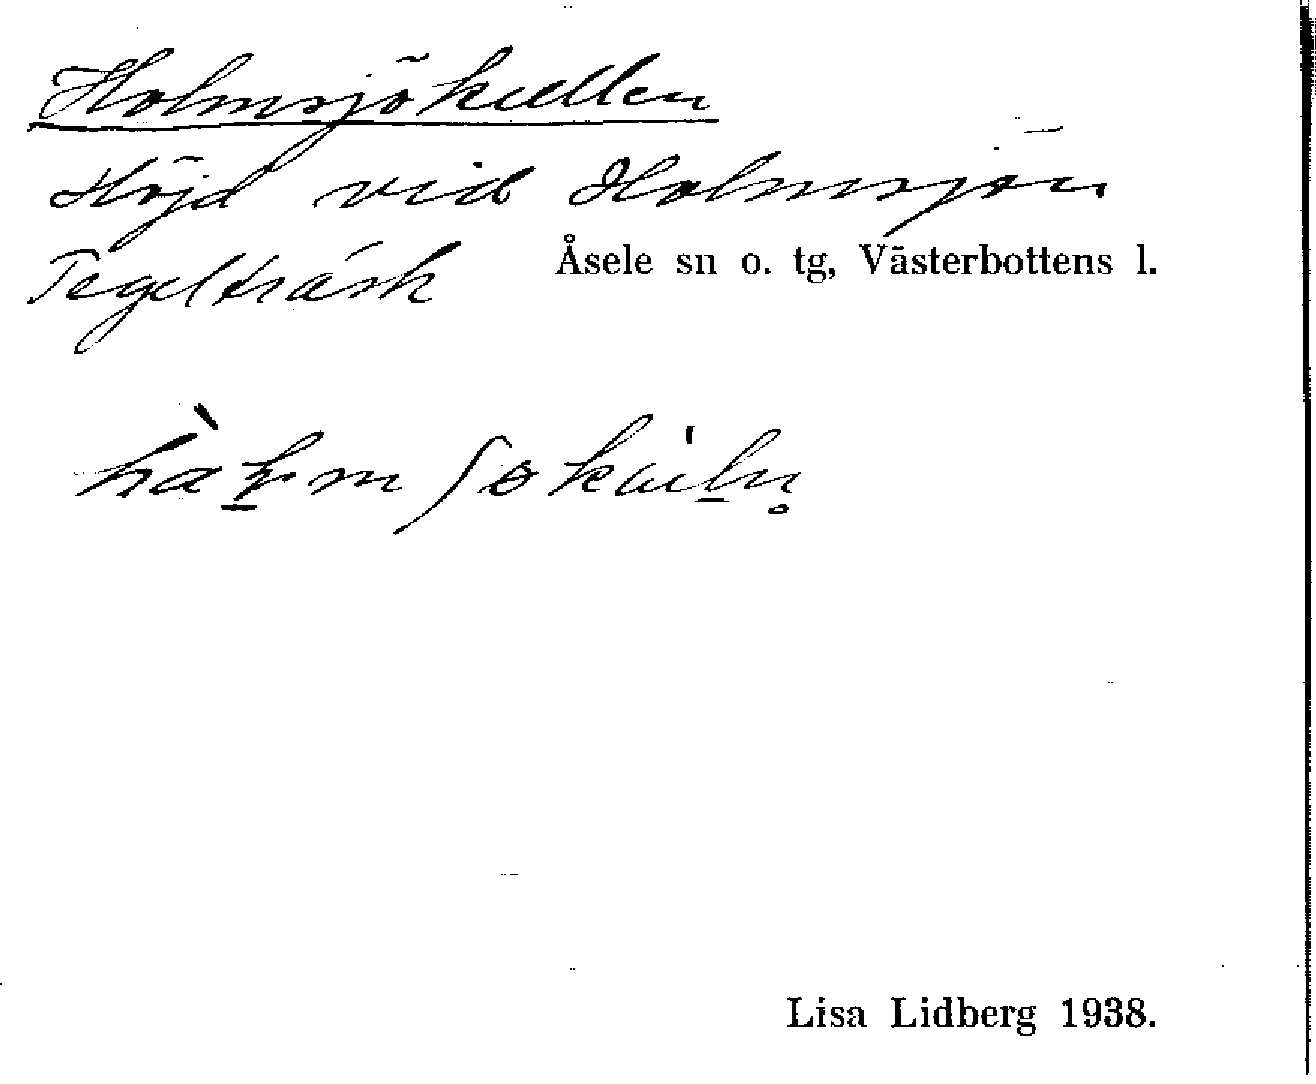 Holmsjökullen
Höjd vid Holmsjön
Tegelträsk Åsele sn o. tg, Västerbottens l.
Lisa Lidberg 1938.